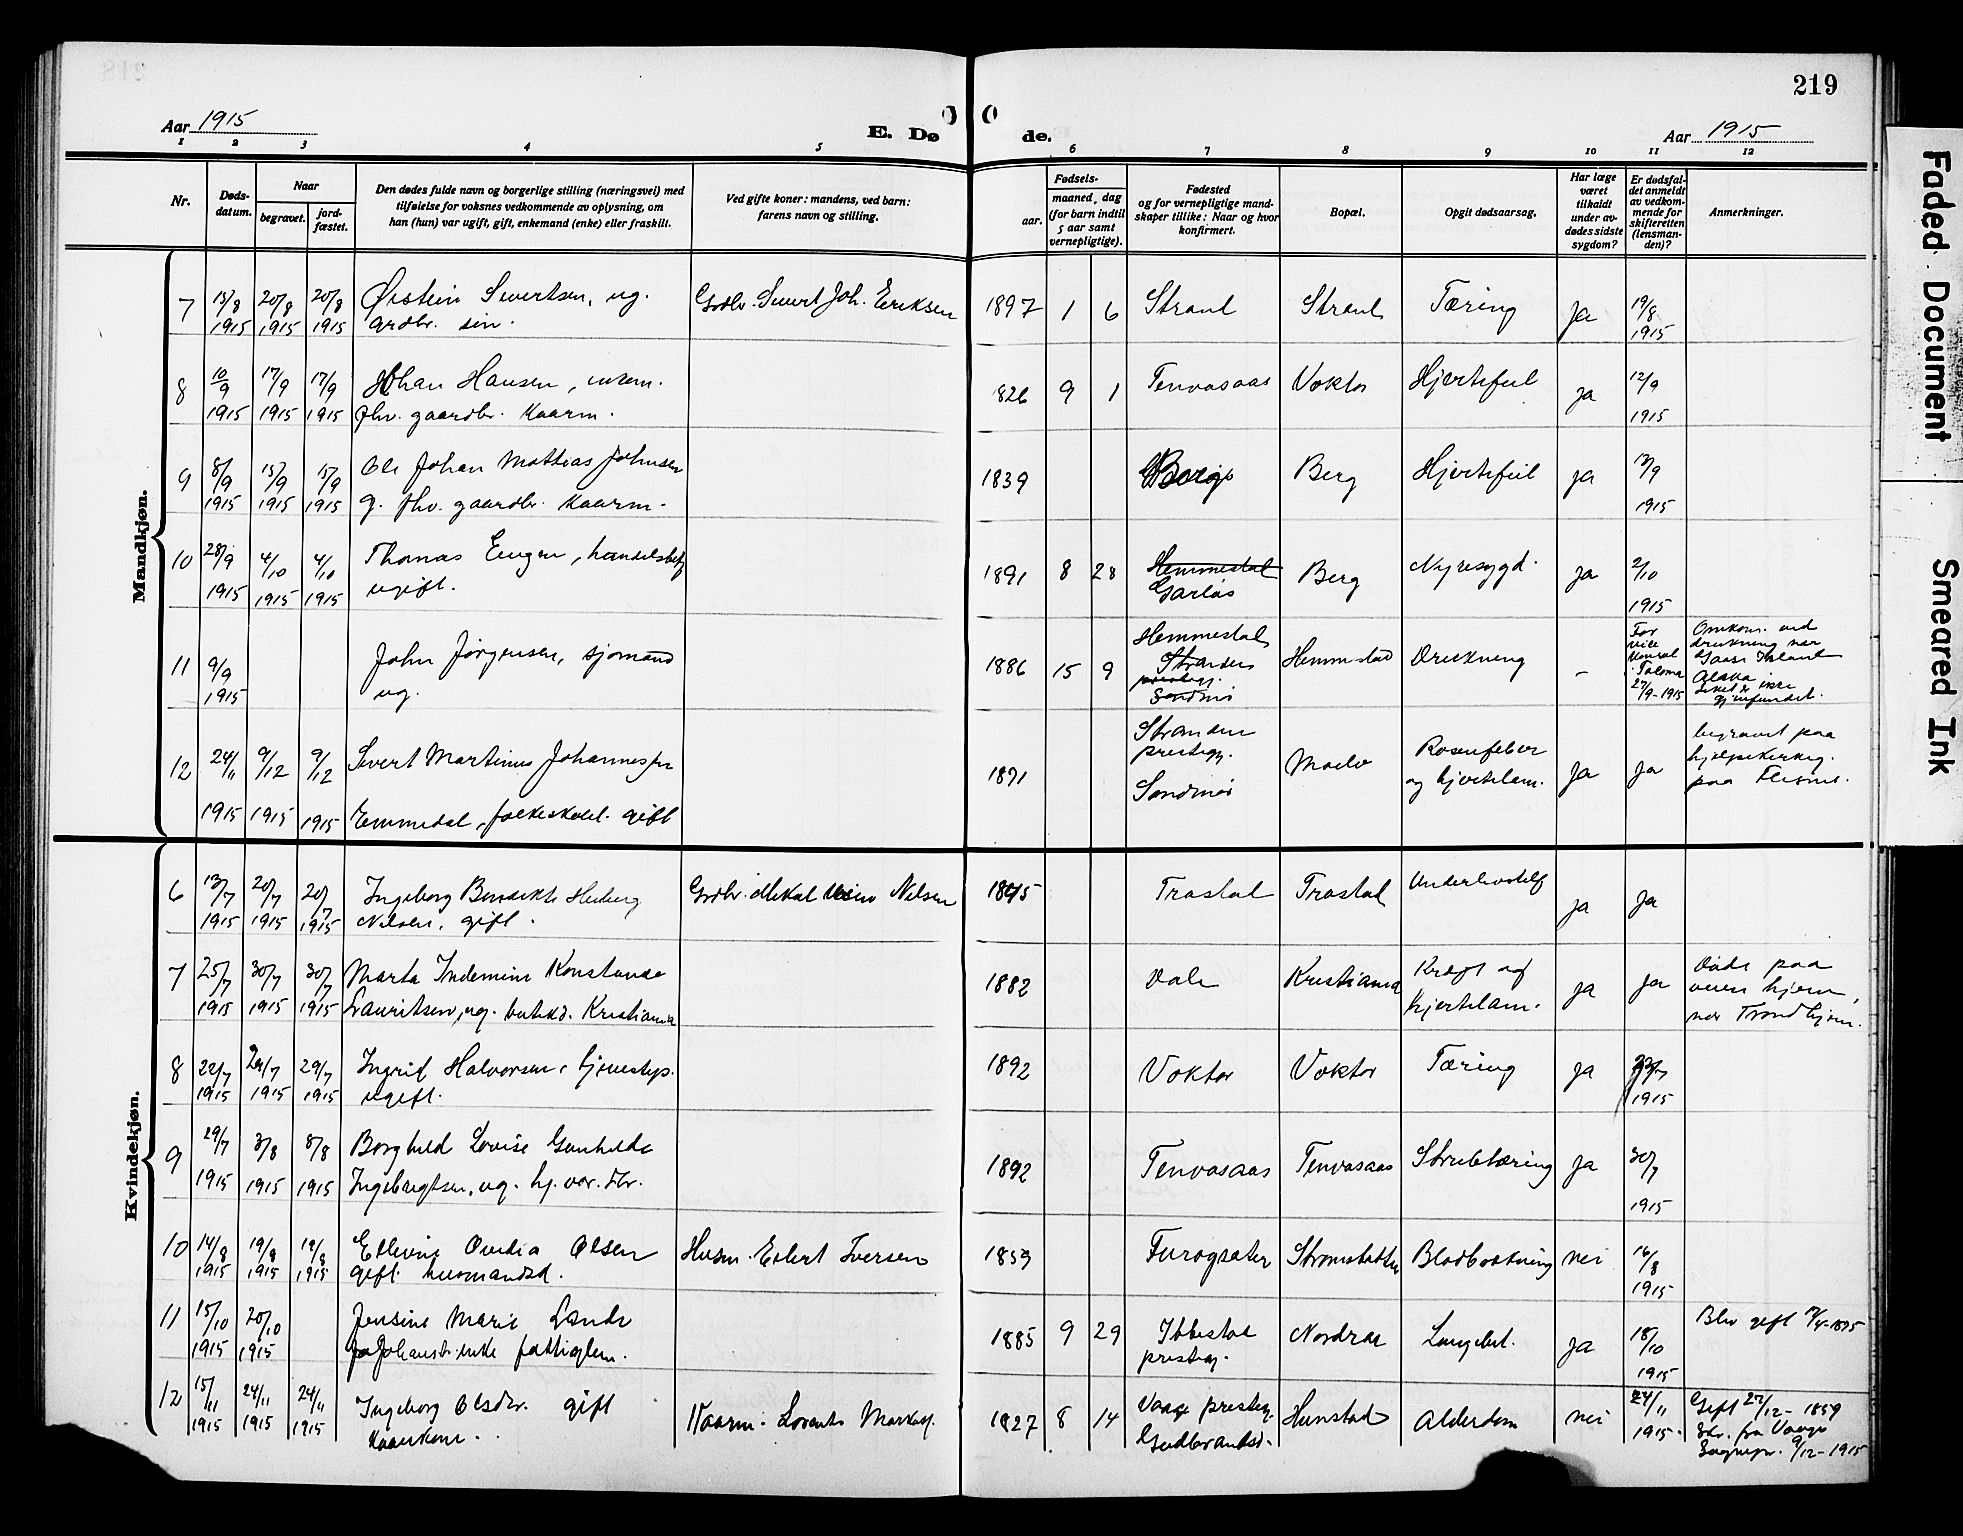 219
Aar 1915
E. Dø
de.
Aar 1915
1 2 3 4 5 6 7 8 9 10 11 12
Nr.
Døds-
datum.
Naar
begravet.
jord-
fæstet.
Den dødes fulde navn og borgerlige stilling (næringsvei) med
tilføielse for voksnes vedkommende av oplysning, om
han (hun) var ugift, gift, enkemand (enke) eller fraskilt.
Ved gifte koner: mandens, ved barn:
farens navn og stilling.
Fødsels-
aar.
maaned, dag
(for barn indtil
5 aar samt
vernepligtige).
Fødested
og for vernepligtige mand-
skaper tillike: Naar og hvor
konfirmert.
Bopæl.
Opgit dødsaarsag.
Har læge
været
tilkaldt
under av-
dødes sidste
sygdom?
Er dødsfal-
det anmeldt
av vedkom-
mende for
skifteretten
(lensman-
den)?
Anmerkninger.
Mandkjøn.
7 15/8 20/8 20/8 Øistein Sivertsen, ug. Grdbr. Sivert Joh. Eriksen 1897 1 6 Strand Strand Tæring Ja 19/8
1915 1915 1915 grdbr. søn. 1915
8 10/9 17/9 17/9 Johan Hansen, enkem. 1826 9 1 Tenvasaas Voktor Hjertefeil ja 12/9
1915 1915 1915 fhv. gaardbr. kaarm. 1915
9 8/9 15/9 15/9 Ole Johan Mathias Johnsen 1839 Berg Hjertefeil ja 13/9
1915 1915 1915 g. fhv. gaardbr. kaarm. 1915
10 28/9 4/10 4/10 Thomas Eugen, handelsbetj 1891 8 28 Hemmestad Berg Nyresygd. ja 2/10
1915 1915 1915 ugift. 1915
11 9/9 John Jørgensen, sjømand 1886 15 9 Hemmestad Hemmestad Drukning –
1915 ug.
Stranden
prestegj.
Søndmør
For
vice
konsul
Tacoma
27/9-1915
Omkom. ved
drukning nær
Island
Alaska
Liket er ikke
gjenfundet.
12 24/11 9/12 9/12 Sivert Martinus Johannessen 1871 Stranden
prestegj.
Søndmør Moelv Rosenfeber
og hjertelam. Ja ja begravet paa
hjelpekirkeg.
paa Flesnes.
1915 1915 1915 Emmedal, folkeskolel. gift
Kvindekjøn.
6 13/7 20/7 20/7 Ingeborg Benedikte Grdbr. Mikal Nilsen 1845 Trastad Trastad Underlivslidf ja ja
1915 1915 1915 Nilsen, gift.
7 25/7 30/7 30/7 Marta Indemine Konstanse 1882 Vale Kristiania Kræft og
hjertelam. ja ja Døde paa
veien hjem,
nær Trondhjem.
1915 1915 1915 Lauritsen, ug. butikd. Kristiania
8 22/7 29/7 29/7 Ingrid Halvorsen, tjenestep. 1892 Voktor Voktor Tæring ja
1915 1915 1915 ugift. 1915
9 29/7 3/8 8/8 Borghild Lovise Gunhilde 1892 Tenvasaas Tenvasaas Strubetæring ja 30/7
1915 1915 1915 Ingebrigtsen, ug. hj. vær. dtr. 1915
10 14/8 19/8 19/8 Ellevine Ovedia Olsen Husm. Edert Iversen 1853 Furogsæter Blodbrækning nei 16/8
1915 1915 1915 gift husmandsd. 1915
11 15/10 20/10 Jensine Marie Lande 1885 9 29 Ibbestad
prestegj. Langebet. ja 18/10 Blev gift
1915 1915 enke fattiglem. 1915
12 15/11 24/11 24/11 Ingeborg Olsdtr. gift Kaarm. Lorents 1827 8 14 Vaage prestegj.
Gudbrandsd. Hunstad Alderdom nei 24/11 Gift 27/12-1859
1915 1915 1915 kaarkone. 1915. fra Vaage
Sognepr. 9/12-1915
Faded Document
Smeared Ink